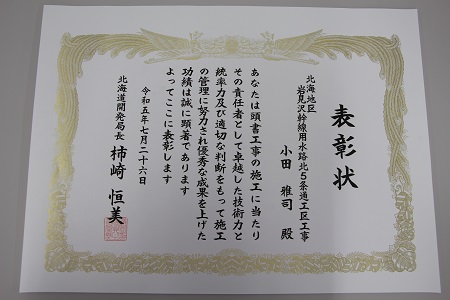 表彰状
北海地区
岩見沢幹線用水路北5条通工区工事
小田 雅司 殿
あなたは頭書工事の施工に当たり
その責任者として卓越した技術力と
統率力及び適切な判断をもって施工
の管理に努力され優秀な成果を上げた
功績は誠に顕著であります
よってここに表彰します
令和五年七月二十六日
北海道開発局長 柿崎 恒美